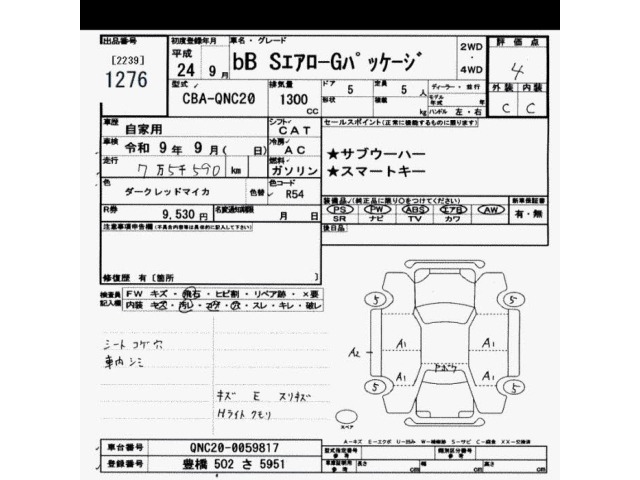 出品番号 初度登録年月 車名・グレード 評価点
[2239] 平成 2WD
1276 24年 9月 bB SエアローGパッケージ ・ 4
4WD
型式 排気量 ドア 5 定員 5人 ディーラー・並行 外装 内装
CBA-QNC20 1300 形状 積載 kg モデル年式 年 C C
CC ハンドル 左・右
車歴 自家用 シフト CAT セールスポイント(正常に機能するものに限ります)
車検 令和 9年 9月( 日) 冷房 AC ★サブウーハー
走行 7万5千590 km 燃料 ガソリン ★スマートキー
色 ダークレッドマイカ 色替 色コード R54
装備品✓(純正品に限り○をつけてください) 新車保証書
R券 9,530円 名変通知期限 月 日 PS PW ABS エアB AW 有・無
SR ナビ TV カワ
注意事項申告欄(不具合内容等は具体的に記入して下さい) 後日品
修復歴 有[箇所 ]
検査員 FW キズ・飛石・ヒビ割・リペア跡・×要
記入欄 内装 キズ・汚レ・コゲ・穴・スレ・キレ・破レ
5 5
シート コゲ穴 A1 A1
車内 シミ A2
ヤネウラ
A1 A1
5 5
キズ E スリキズ
Hライト クモリ
スペア
A-キズ E-エクボ U-凹み W-補修跡 S-サビ C-腐食 XX-交換済
車台番号 QNC20-0059817 型式指定番号 参考 類別区分番号 参考
登録番号 豊橋 502 さ 5951 車庫証明用 参考 長さ cm 幅 cm 高さ cm